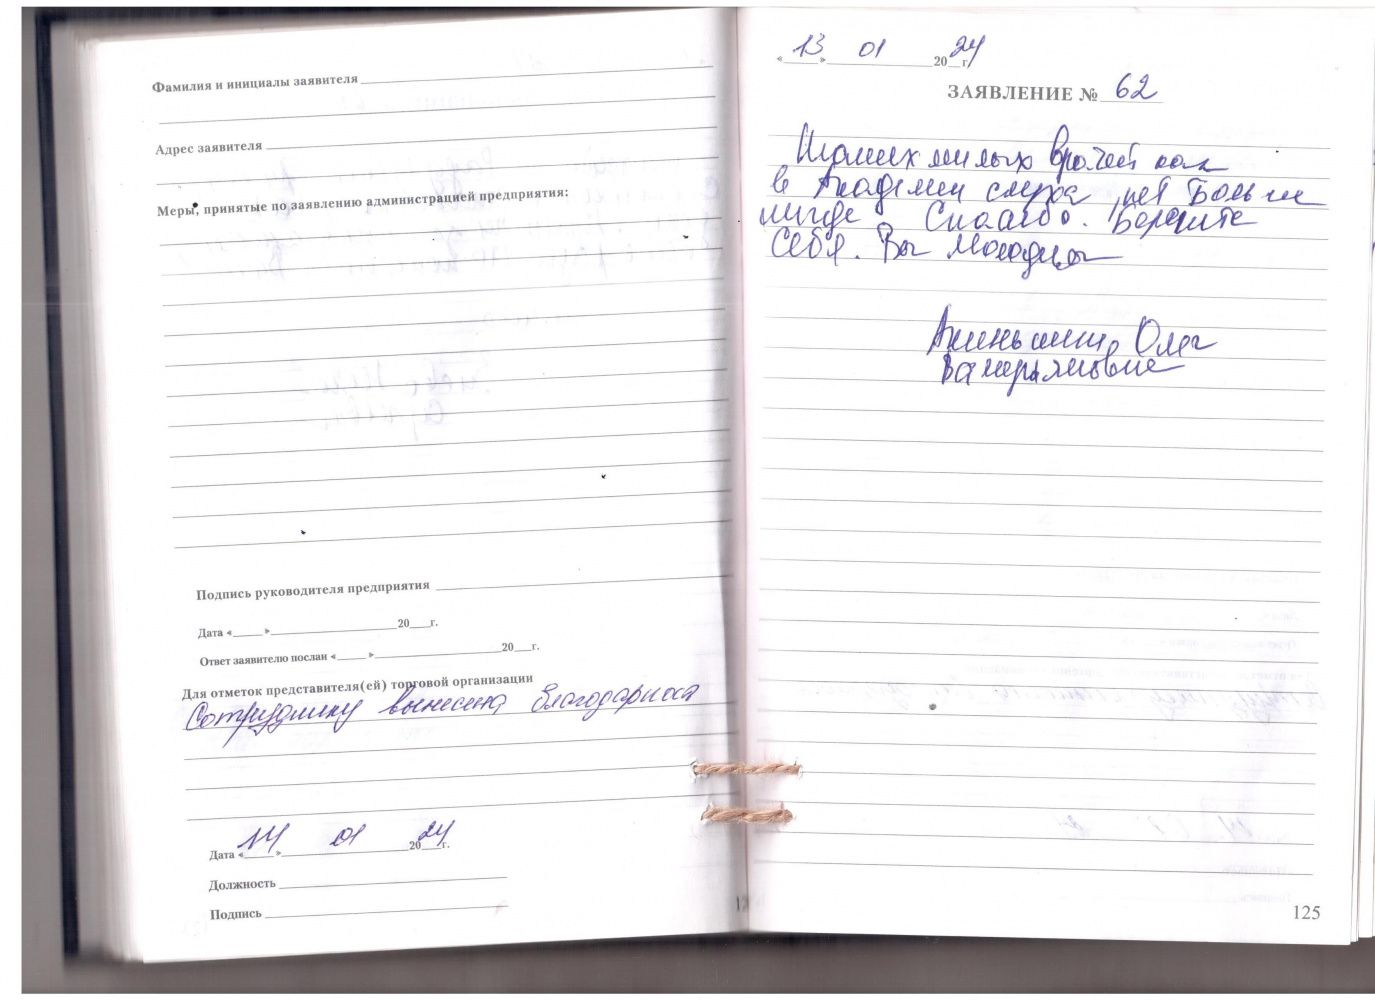 Фамилия и инициалы заявителя
Адрес заявителя
Меры, принятые по заявлению администрацией предприятия:
Подпись руководителя предприятия
Дата «___»___20___г.
Ответ заявителю послан «___»___20___г.
Для отметок представителя(ей) торговой организации
Сотруднику вынесена благодарность
Дата «14» 01 2024г.
Должность
Подпись
«13» 01 2024г.
ЗАЯВЛЕНИЕ № 62
милых врачей как
в Академии слуха нет больше
нигде Спасибо. Берегите
Себя. Вы Молодцы
Олег
Валерьянович
125